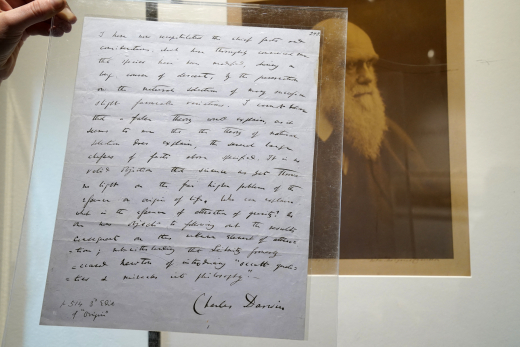 I have now recapitulated the chief facts and
considerations, which have thoroughly convinced me
that species have been modified, during a
long course of descent, by the preservation
or the natural selection of many successive
slight favourable variations. I cannot believe
that a false theory would explain, as it
seems to me that the theory of natural
selection does explain, the several large
classes of facts above specified. It is no
valid objection that science as yet throws
no light on the far higher problem of the
essence or origin of life. Who can explain
what is the essence of attraction of gravity? No
one now objects to following out the results
consequent on this unknown element of attrac
-tion; notwithstanding that Leibnitz formerly
accused Newton of introducing "occult quali-
-ties & miracles into philosophy".—
Charles Darwin
p. 514 3d Edit
of "Origin"